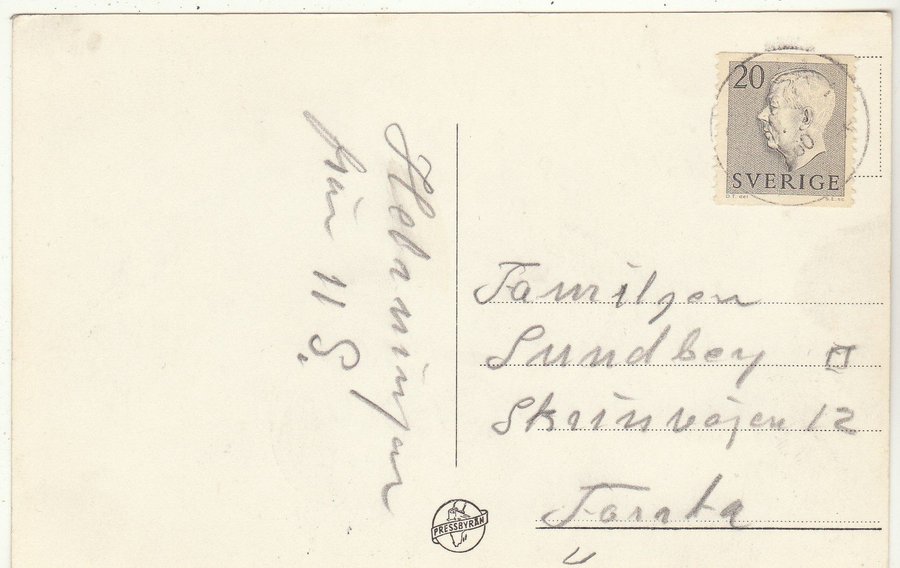 Helsningar
från II S.
20
SVERIGE
Familjen
Sundbey
Skrinvägen 12
Farsta
PRESSBYRÅN